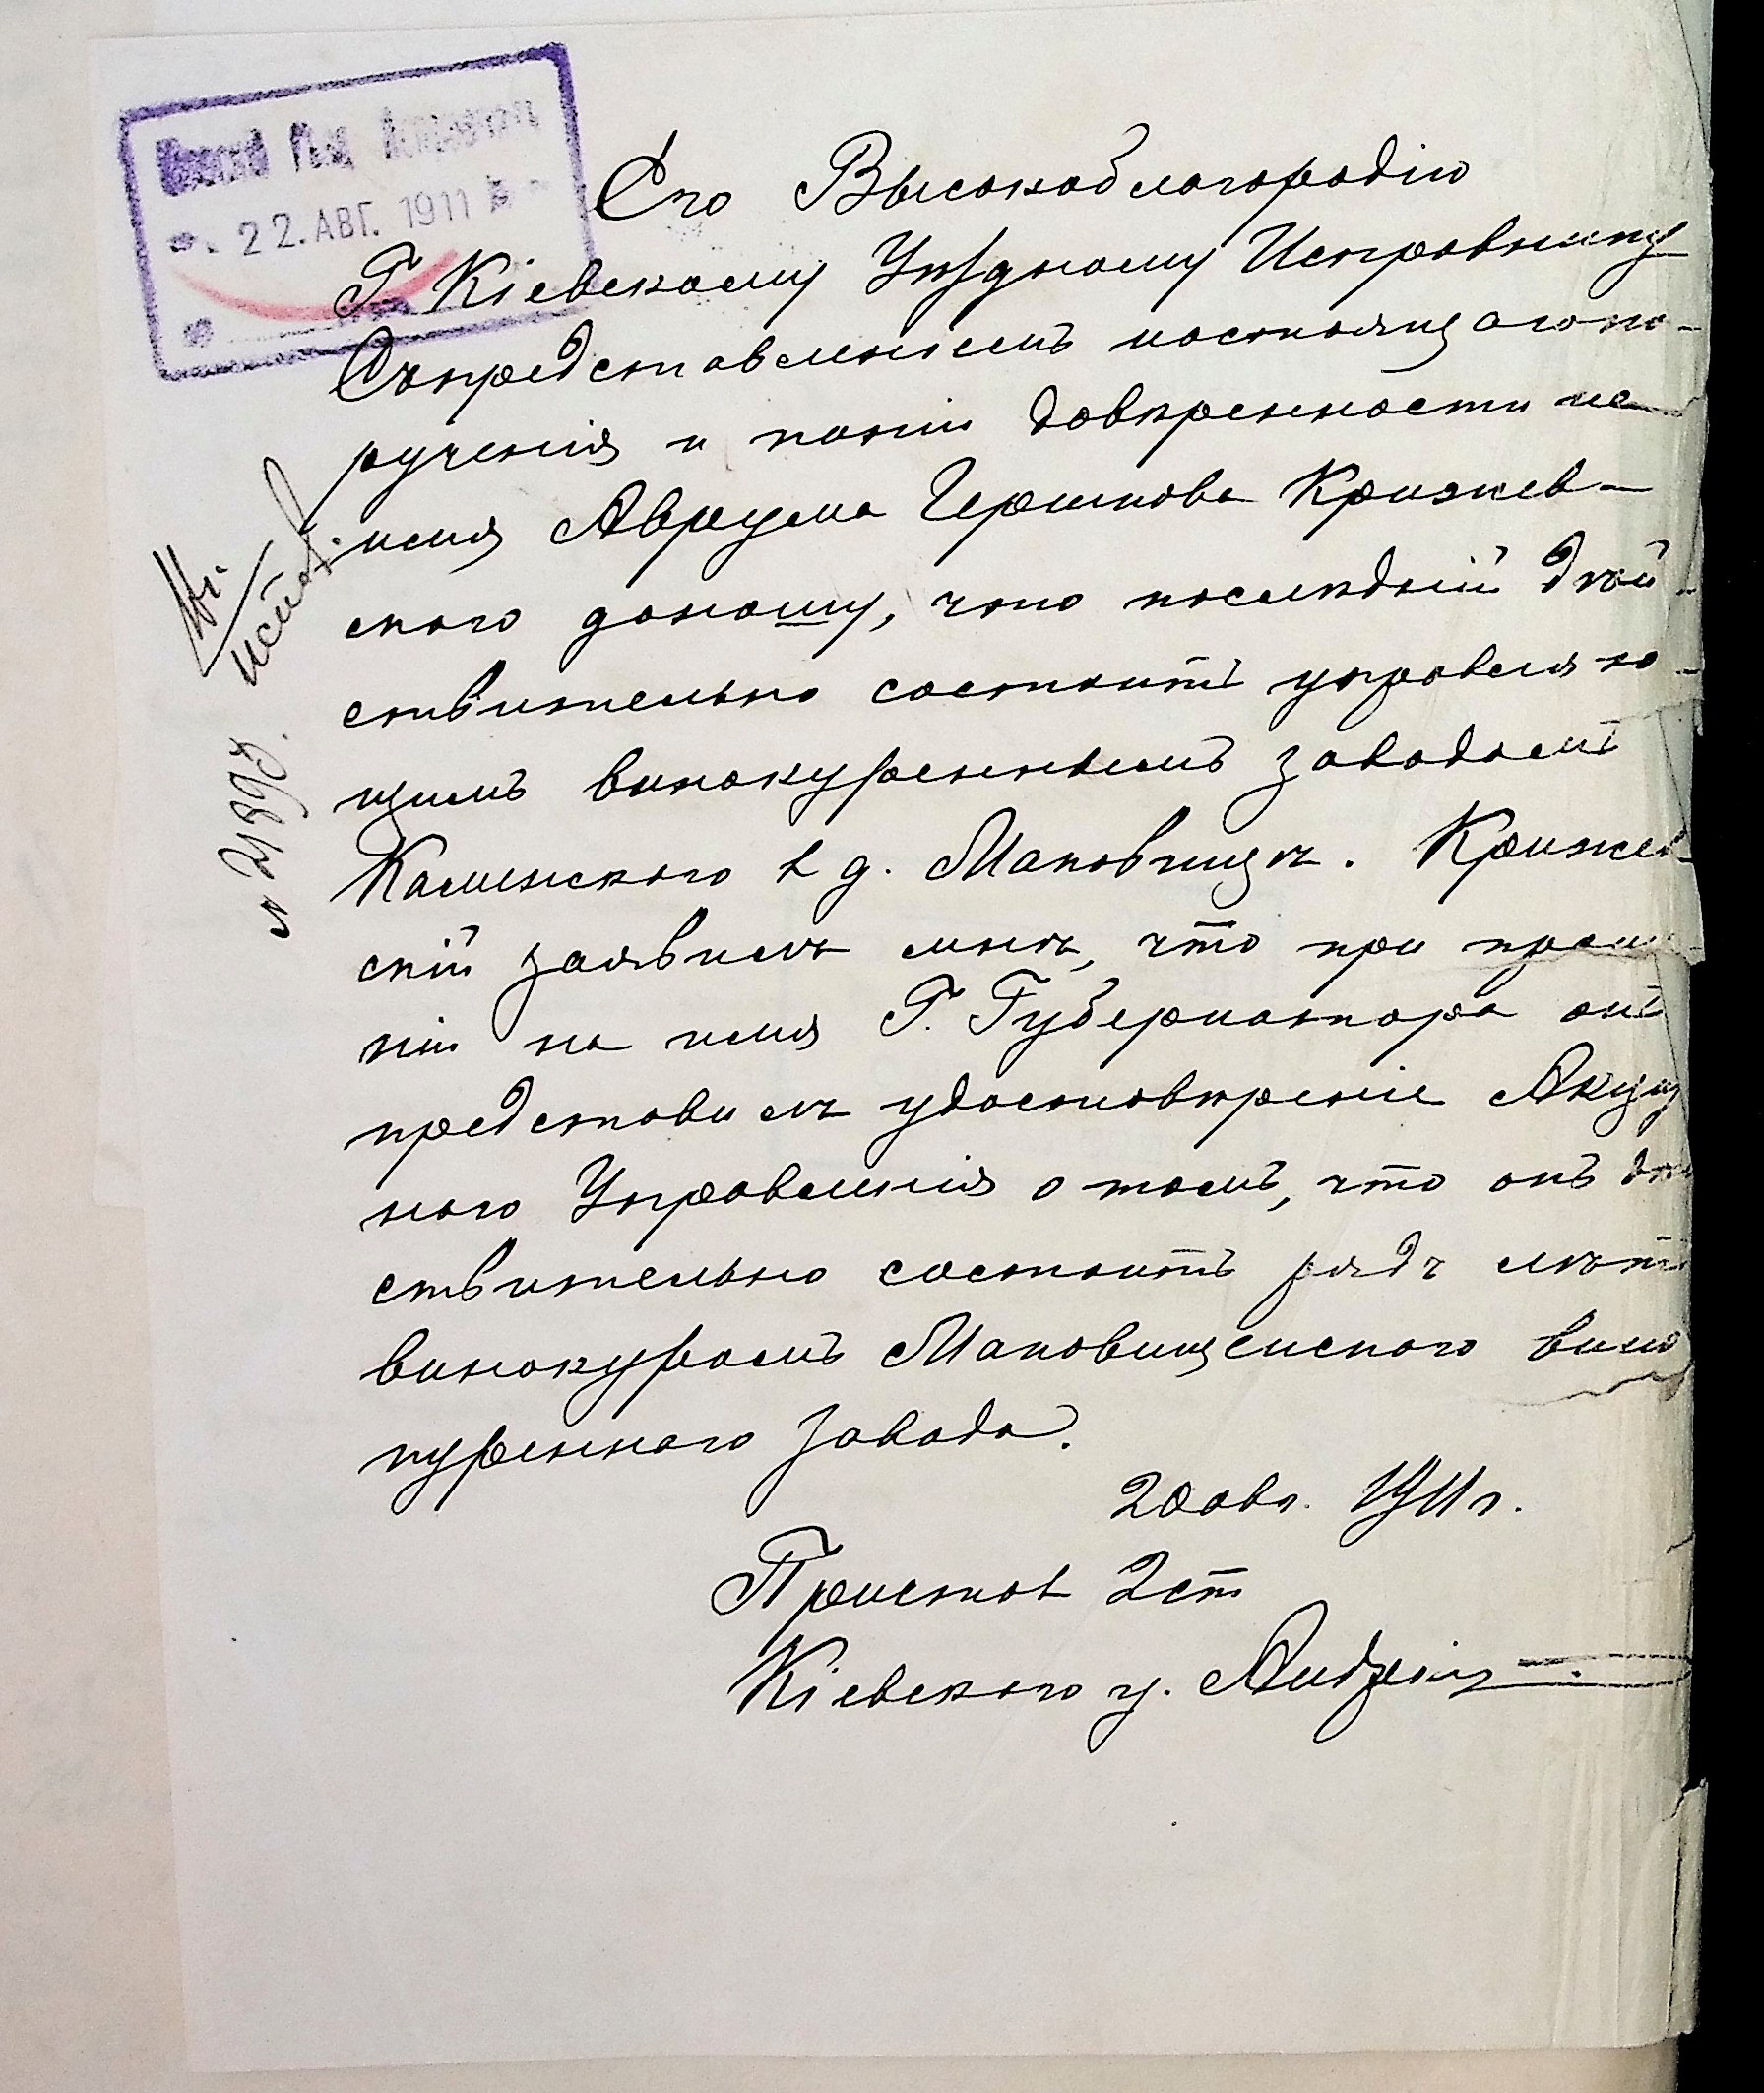 22. АВГ. 1911
Его Высокоблагородію
Г. Кіевскому Уѣздному Исправнику
Съ представленіемъ настоящаго по-
рученія и копіи довѣренности на
имя Аврума Гершкова Крижев-
скаго доношу, что послѣдній дѣй-
ствительно состоитъ управляю-
щимъ винокуреннымъ заводомъ
Каменского в д. Маковищѣ. Крижев-
скій заявилъ мнѣ, что при проше-
ніи на имя Г. Губернатора онъ
представилъ удостовѣреніе Акциз
ного Управленія о томъ, что онъ дѣй
ствительно состоитъ рядъ лѣтъ
винокуромъ Маковищенского вино
куренного завода.
20 авг. 1911 г.
Пристав 2 ст
Кіевского у.